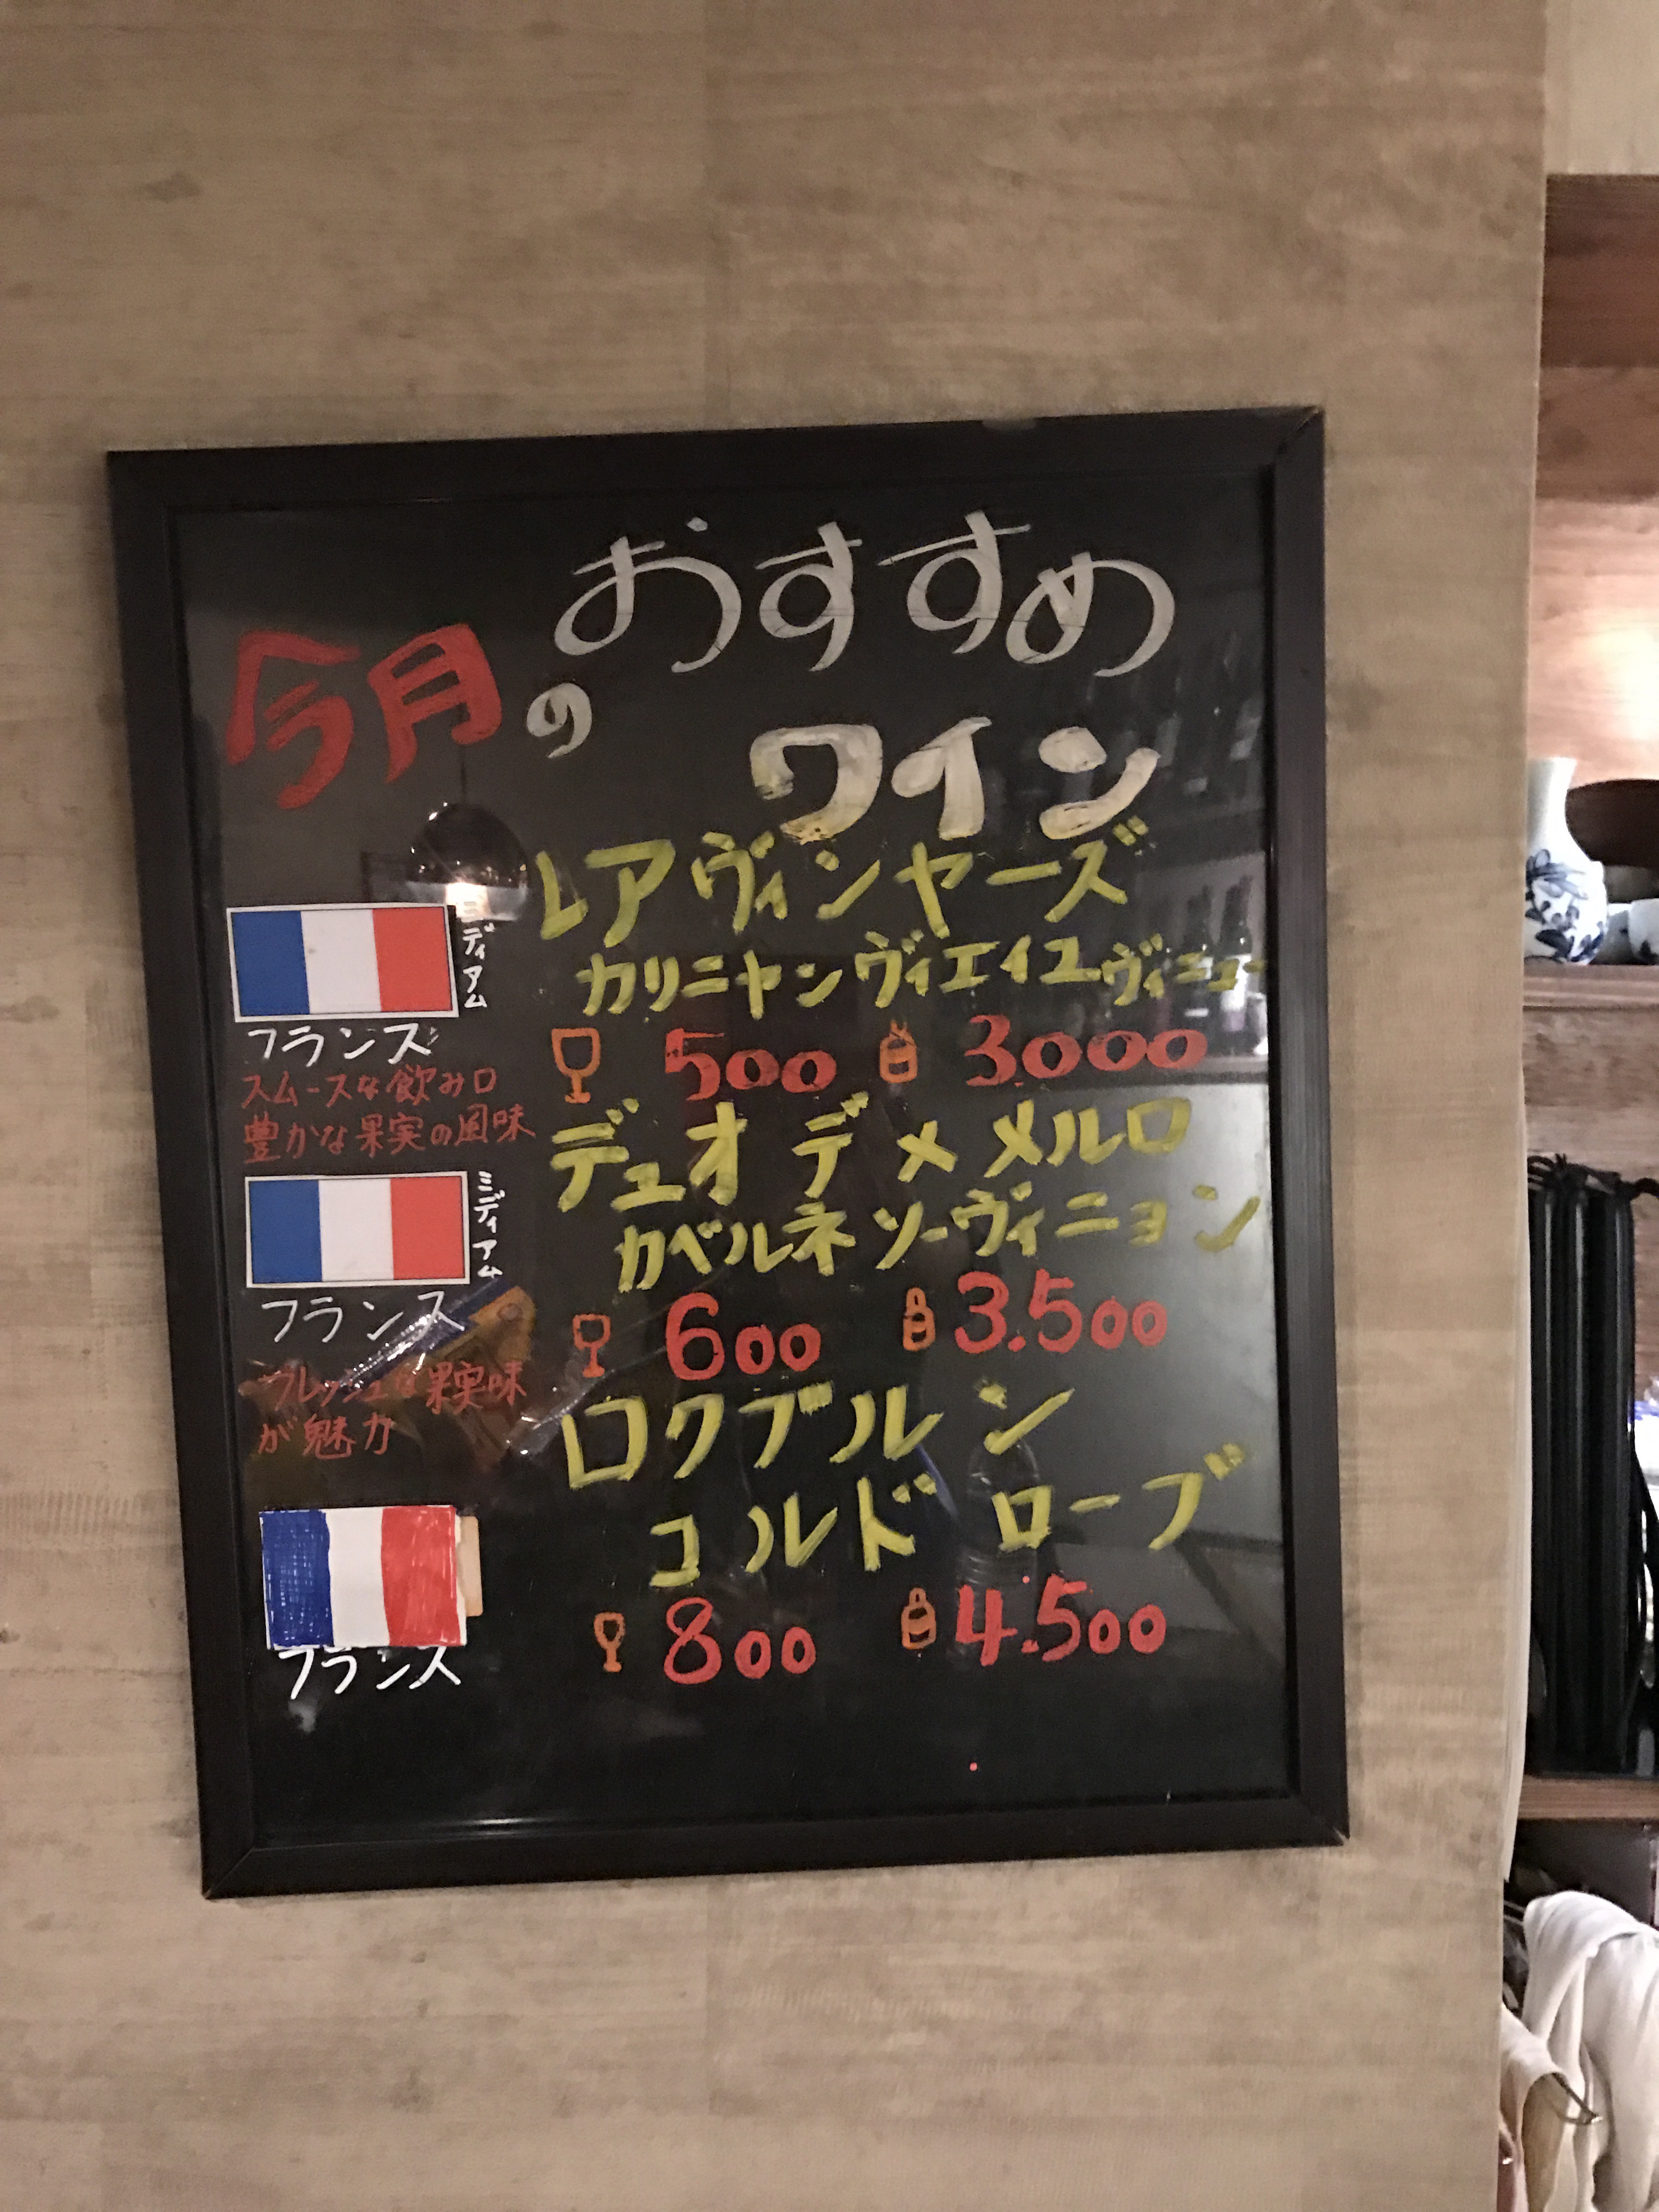 おすすめ
今月の
ワイン
レア ヴィンヤーズ
カリニャン ヴィエイユ ヴィニュー
ミディアム
フランス
500 3000
スムースな飲み口
豊かな果実の風味
デュオ デ メ メルロ
カベルネ ソーヴィニョン
ミディアム
フランス
600 3.500
フレッシュな果実味
が魅力
ロクブルン
コルド ローブ
フランス
800 4.500